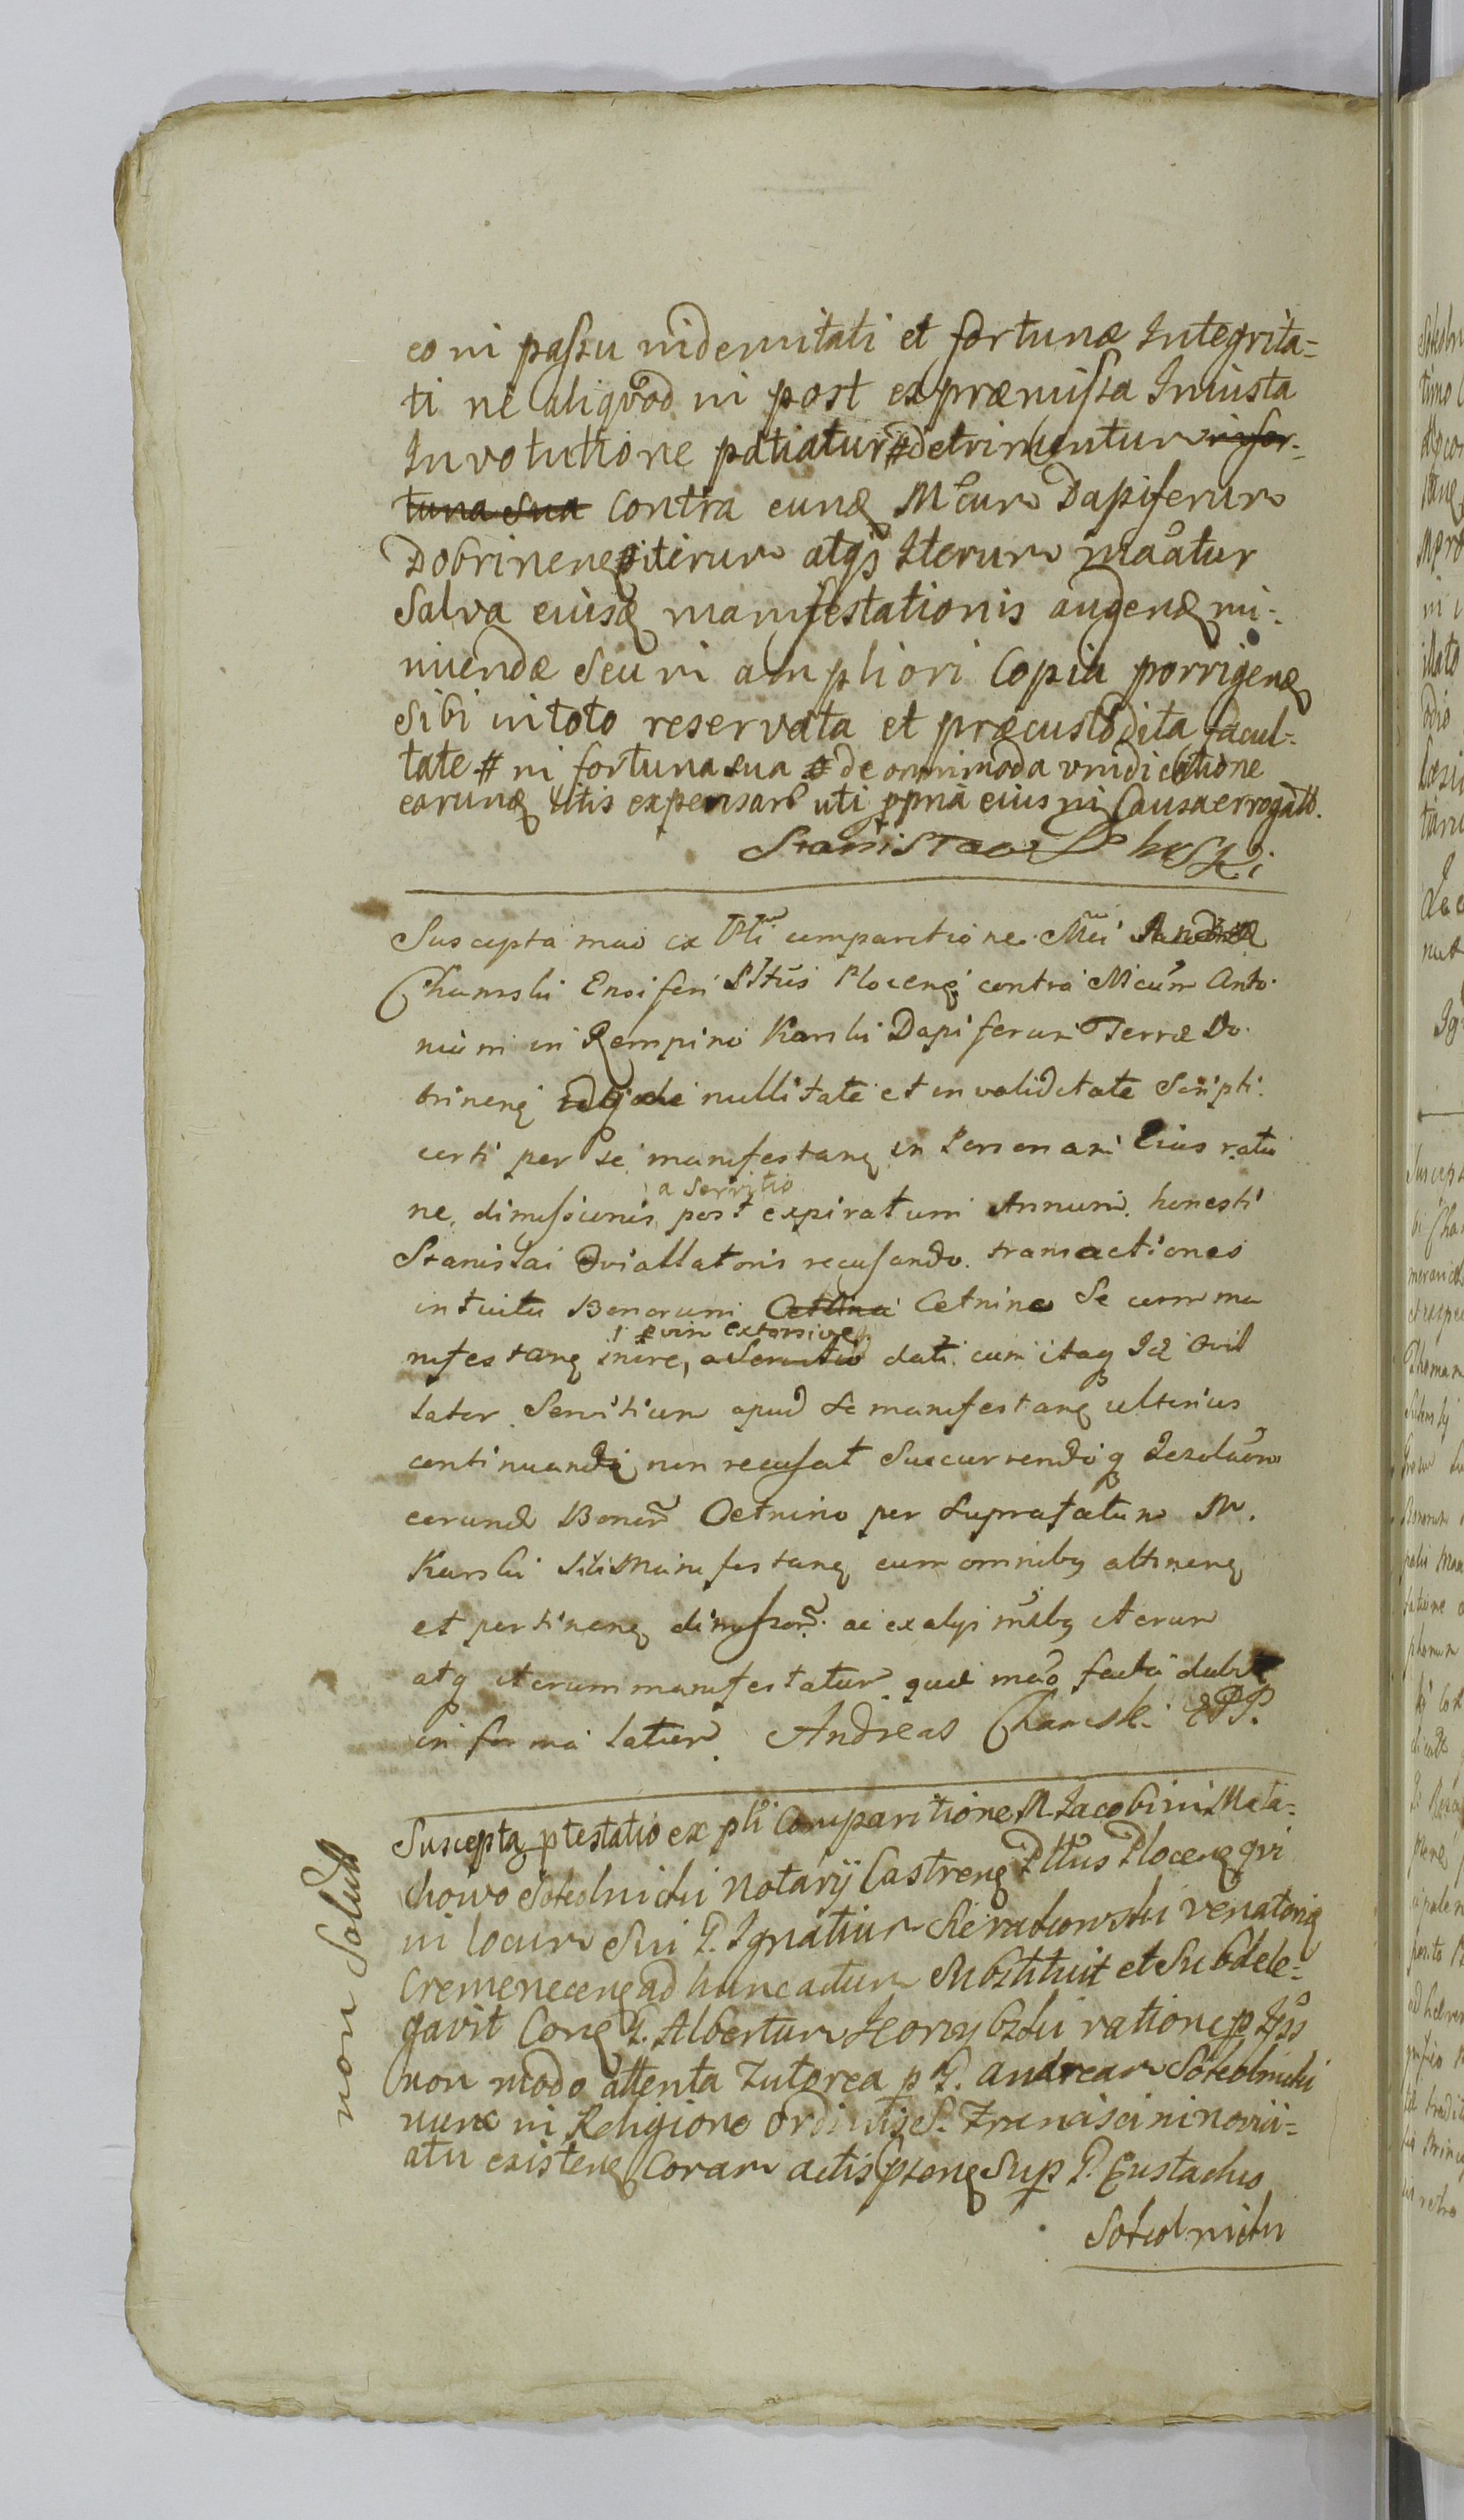 eo in passu indemnitati et fortunæ Integrita=
ti ne aliquod in post ex præmissa Iniusta
Involutione patiatur # detrimentum in for=
tuna sua contra eund M̃cum Dapiferum
Dobrinens iterum atq̃ Iterum mãatur
Salva eiusd manifestationis augend mi=
nuendæ seu in ampliori Copia porrigend
sibi in toto reservata et præcustodita facul=
tate # in fortuna sua # de omnimoda vindicatione
earund litis expensarũ uti ppriã eius in Causa errogatt.
Stanislaus
Suscepta mao ex Pltĩ comparitione Mci Andreæ
Chamski Ensiferi Pltũs Plocens contra Mcum Anto
nium in Rempino Karski Dapiferum Terræ Do
brinens idq de nullitate et invaliditate Scripti
certi per se manifestans in Personam Eius ratio
ne dimissionis post expiratum Annum honesti
a servitio
Stanislai Oviallatoris recusando transactiones
intuitu Bonorum Cetnino Se cum ma
nifestans inire, a servitio dati cum itaq Id Ovil
lator Servitium apud se manifestans ulterius
continuandi non recusat Succurrendi q desolaom
eorund Bonor̃ Cetnino per suprafatum M.
Karski sibi Manifestans cum omnibq attinens
et pertinens dimissor̃ ac ex alys mĩlbq iterum
atq iterum manifestatur quæ mão facta dabit
in forma latiori. Andreas Chamski EPP.
Suscepta ptestatio ex pltĩ Comparitione M. Jacobi in Mata=
chowo Sokolnicki Notarÿ Castrens Pltus Plocens qvi
in locum Sui G. Ignatium Sierakowski venatorid
Cremenecens ad hunc actum Substituit et Subdele=
gavit Cons G. Albertum ratione p Ipss
non modo attenta Tutorea p G. Andream Sokolnicki
nunc in Religione Ordinis S. Francisci in novici=
atu existens Coram actis Psens Sup G. Eustachio
Sokolnicki
non Solut